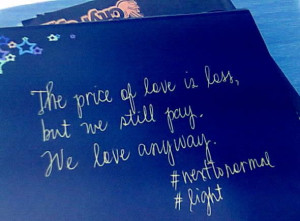 The price of love is loss,
but we still pay.
We love anyway.
#nexttonormal
#light